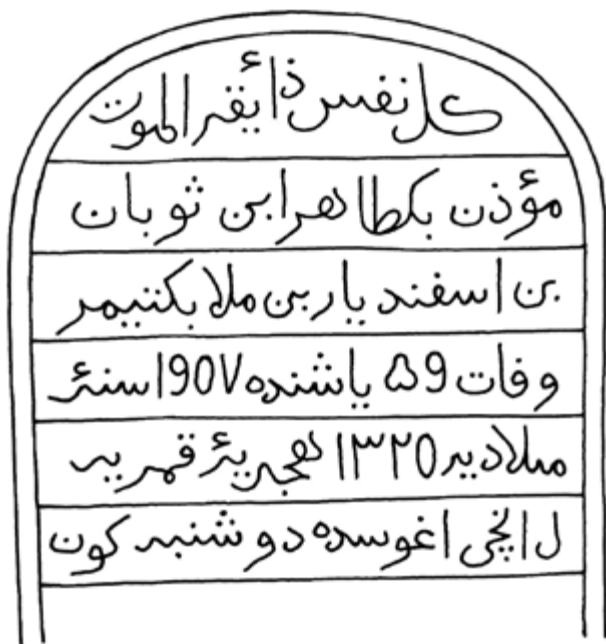 كل نفس ذائقه الموت
مؤذن بكطاهر ابن ثوبان
بن اسفنديار بن ملا بكتيمر
وفات ۵9 ياشنده 190۷ سنۀ
ميلاديه ۱۳۲0 هجريۀ قمريه
انچى اغوسده دوشنبه كون